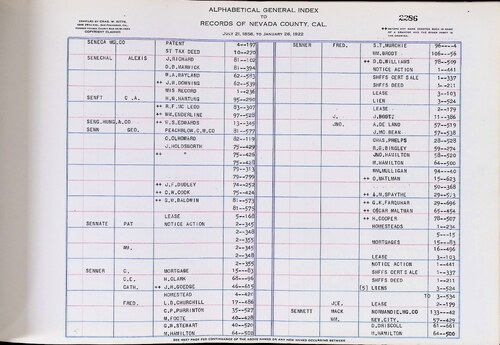 ALPHABETICAL GENERAL INDEX
TO
RECORDS OF NEVADA COUNTY, CAL.
JULY 21, 1856, TO JANUARY 26, 1922
2286
COPYRIGHT CLAIMED
SENECA MG.CO PATENT 4--197
ST TAX DEED 10--270
SENECHAL ALEXIS J.RICHARD 81--102
O.B.MARNICK 81--394
W.A.WAYLAND 62--583
++ J.B.DOWNING 62--539
MIS RECORD 1--236
SENFT C.A. H.W.HARTUNG 95--290
++ R.F.MC LEOD 83--307
++ WM.ENDERLINE 97--528
SENG.HUNG.& CO ++ W.S.EDWARDS 13--345
SENN GEO. PEACHBLOW.G.M.CO 81--577
C.D.HOWARD 82--118
J.HOLDSWORTH 75--429
++ " 75--426
75--428
79--313
79--799
++ J.F.DUDLEY 74--252
++ C.W.COOK 75--424
++ G.M.BALDWIN 81--573
81--575
LEASE 5--168
SENNATE PAT NOTICE ACTION 2--345
2--348
2--355
WM. 2--345
2--348
2--355
SENNER C. MORTGAGE 15--83
C.E. H.CLARK 68--96
CATH. ++ J.H.GOEDGE 46--615
HOMESTEAD 4--420
FRED. L.B.CHURCHILL 17--486
C.P.PURRINTON 35--527
M.FOOTE 40--428
G.M.STEWART 40--520
M.HAMILTON 64--500
SENNER FRED. S.T.MURCHIE 96----4
WM.BROOT 106--56
++ D.G.WILLIAMS 78--509
NOTICE ACTION 1--441
SHFFS CERT SALE 1--337
SHFFS DEED 3--211
LEASE 3--103
LIEN 3--524
LEASE 2--179
J. J.BOSTZ 11--386
JNO. A.DE LAND 57--519
J.MC BEAN 57--538
CHAS.PHELPS 28--528
R.G.BINGLEY 59--274
JNO.HAMILTON 58--520
M.HAMILTON 64--500
WM.MULLIGAN 94--40
++ D.WATLMAN 15--623
50--368
++ A.N.SPAYTHE 29--513
++ G.K.FARQUHAR 29--696
++ OSCAR MALTMAN 65--454
++ H.COOPER 78--507
HOMESTEADS 1--234
5---15
MORTGAGES 15--83
16--496
LEASE 3--103
NOTICE ACTION 1--441
SHFFS CERT SALE 1--337
SHFFS DEED 1--211
(5) LIENS 3--524
TO 3--534
JCE. LEASE 2--179
SENNETT MACK NORMANDIE.MG.CO 133--42
WM. NEV.CITY 57--429
D.DRISCOLL 61--661
M.HAMILTON 64--500